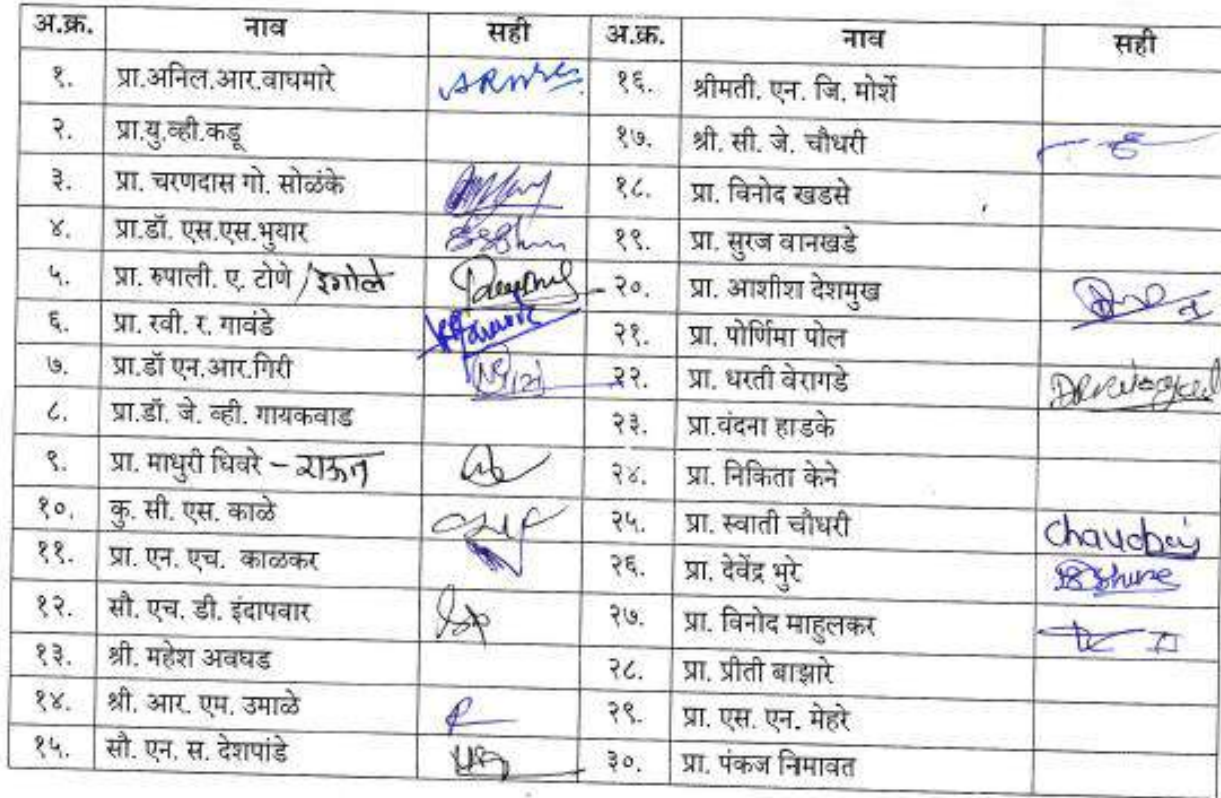 अ.क्र. नाव सही अ.क्र. नाव सही
१. प्रा.अनिल.आर.वाघमारे १६. श्रीमती. एन. जि. मोर्शे
२. प्रा.यु.व्ही.कडू १७. श्री. सी. जे. चौधरी
३. प्रा. चरणदास गो. सोळंके १८. प्रा. विनोद खडसे
४. प्रा.डॉ. एस.एस.भुयार १९. प्रा. सुरज वानखडे
५. प्रा. रुपाली. ए. टोणे / इंगोले २०. प्रा. आशीश देशमुख
६. प्रा. रवी. र. गावंडे २१. प्रा. पोर्णिमा पोल
७. प्रा.डॉ एन.आर.गिरी २२. प्रा. धरती वेरागडे
८. प्रा.डॉ. जे. व्ही. गायकवाड २३. प्रा.वंदना हाडके
९. प्रा. माधुरी घिवरे – राऊत २४. प्रा. निकिता केने
१०. कु. सी. एस. काळे २५. प्रा. स्वाती चौधरी
११. प्रा. एन. एच. काळकर २६. प्रा. देवेंद्र भुरे
१२. सौ. एच. डी. इंदापवार २७. प्रा. विनोद माहुलकर
१३. श्री. महेश अवघड २८. प्रा. प्रीती बाझारे
१४. श्री. आर. एम. उमाळे २९. प्रा. एस. एन. मेहरे
१५. सौ. एन. स. देशपांडे ३०. प्रा. पंकज निमावत